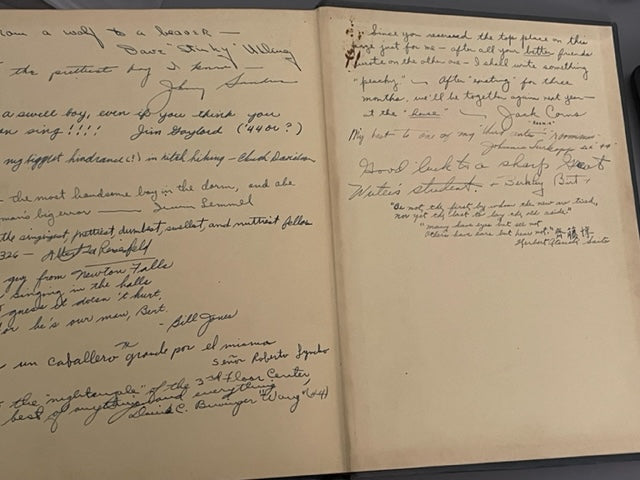 from a wolf to a beaver —
Dave "Stinky"
the prettiest boy I know —
Johnny
a swell boy, even if you think you
can sing!!!! Jim Gaylord ('44 or ?)
my biggest hindrance (!) in hitch hiking — Chuck Davidson
— the most handsome boy in the dorm, and
man's big error — Jim Lemmel
the singingest, prettiest, dumbest, swellest, and nuttiest fellow
326 —
guy from Newton Falls
singing in the halls
guess it doesn't hurt,
for he's our man, Bert.
- Bill Jones
un caballero grande por el mismo
Señor Roberto
the "nightingale" of the 3rd Floor Center,
best of anything and everything
David C. "Wang" (44)
Since you reserved the top place on this
page just for me — after all your better friends
write on the other one — I shall write something
"peachy" — After "waiting" for three
months, we'll be together again next year —
at the "house" — Jack Corns
My best to one of my "roommie"
Good luck to a sharp
student — Birt
"Be not the first by whom the new are tried,
nor yet the last to lay the old aside"
"many have eyes but see not
others have ears but hear not." 齊藤博
Herbert Saito